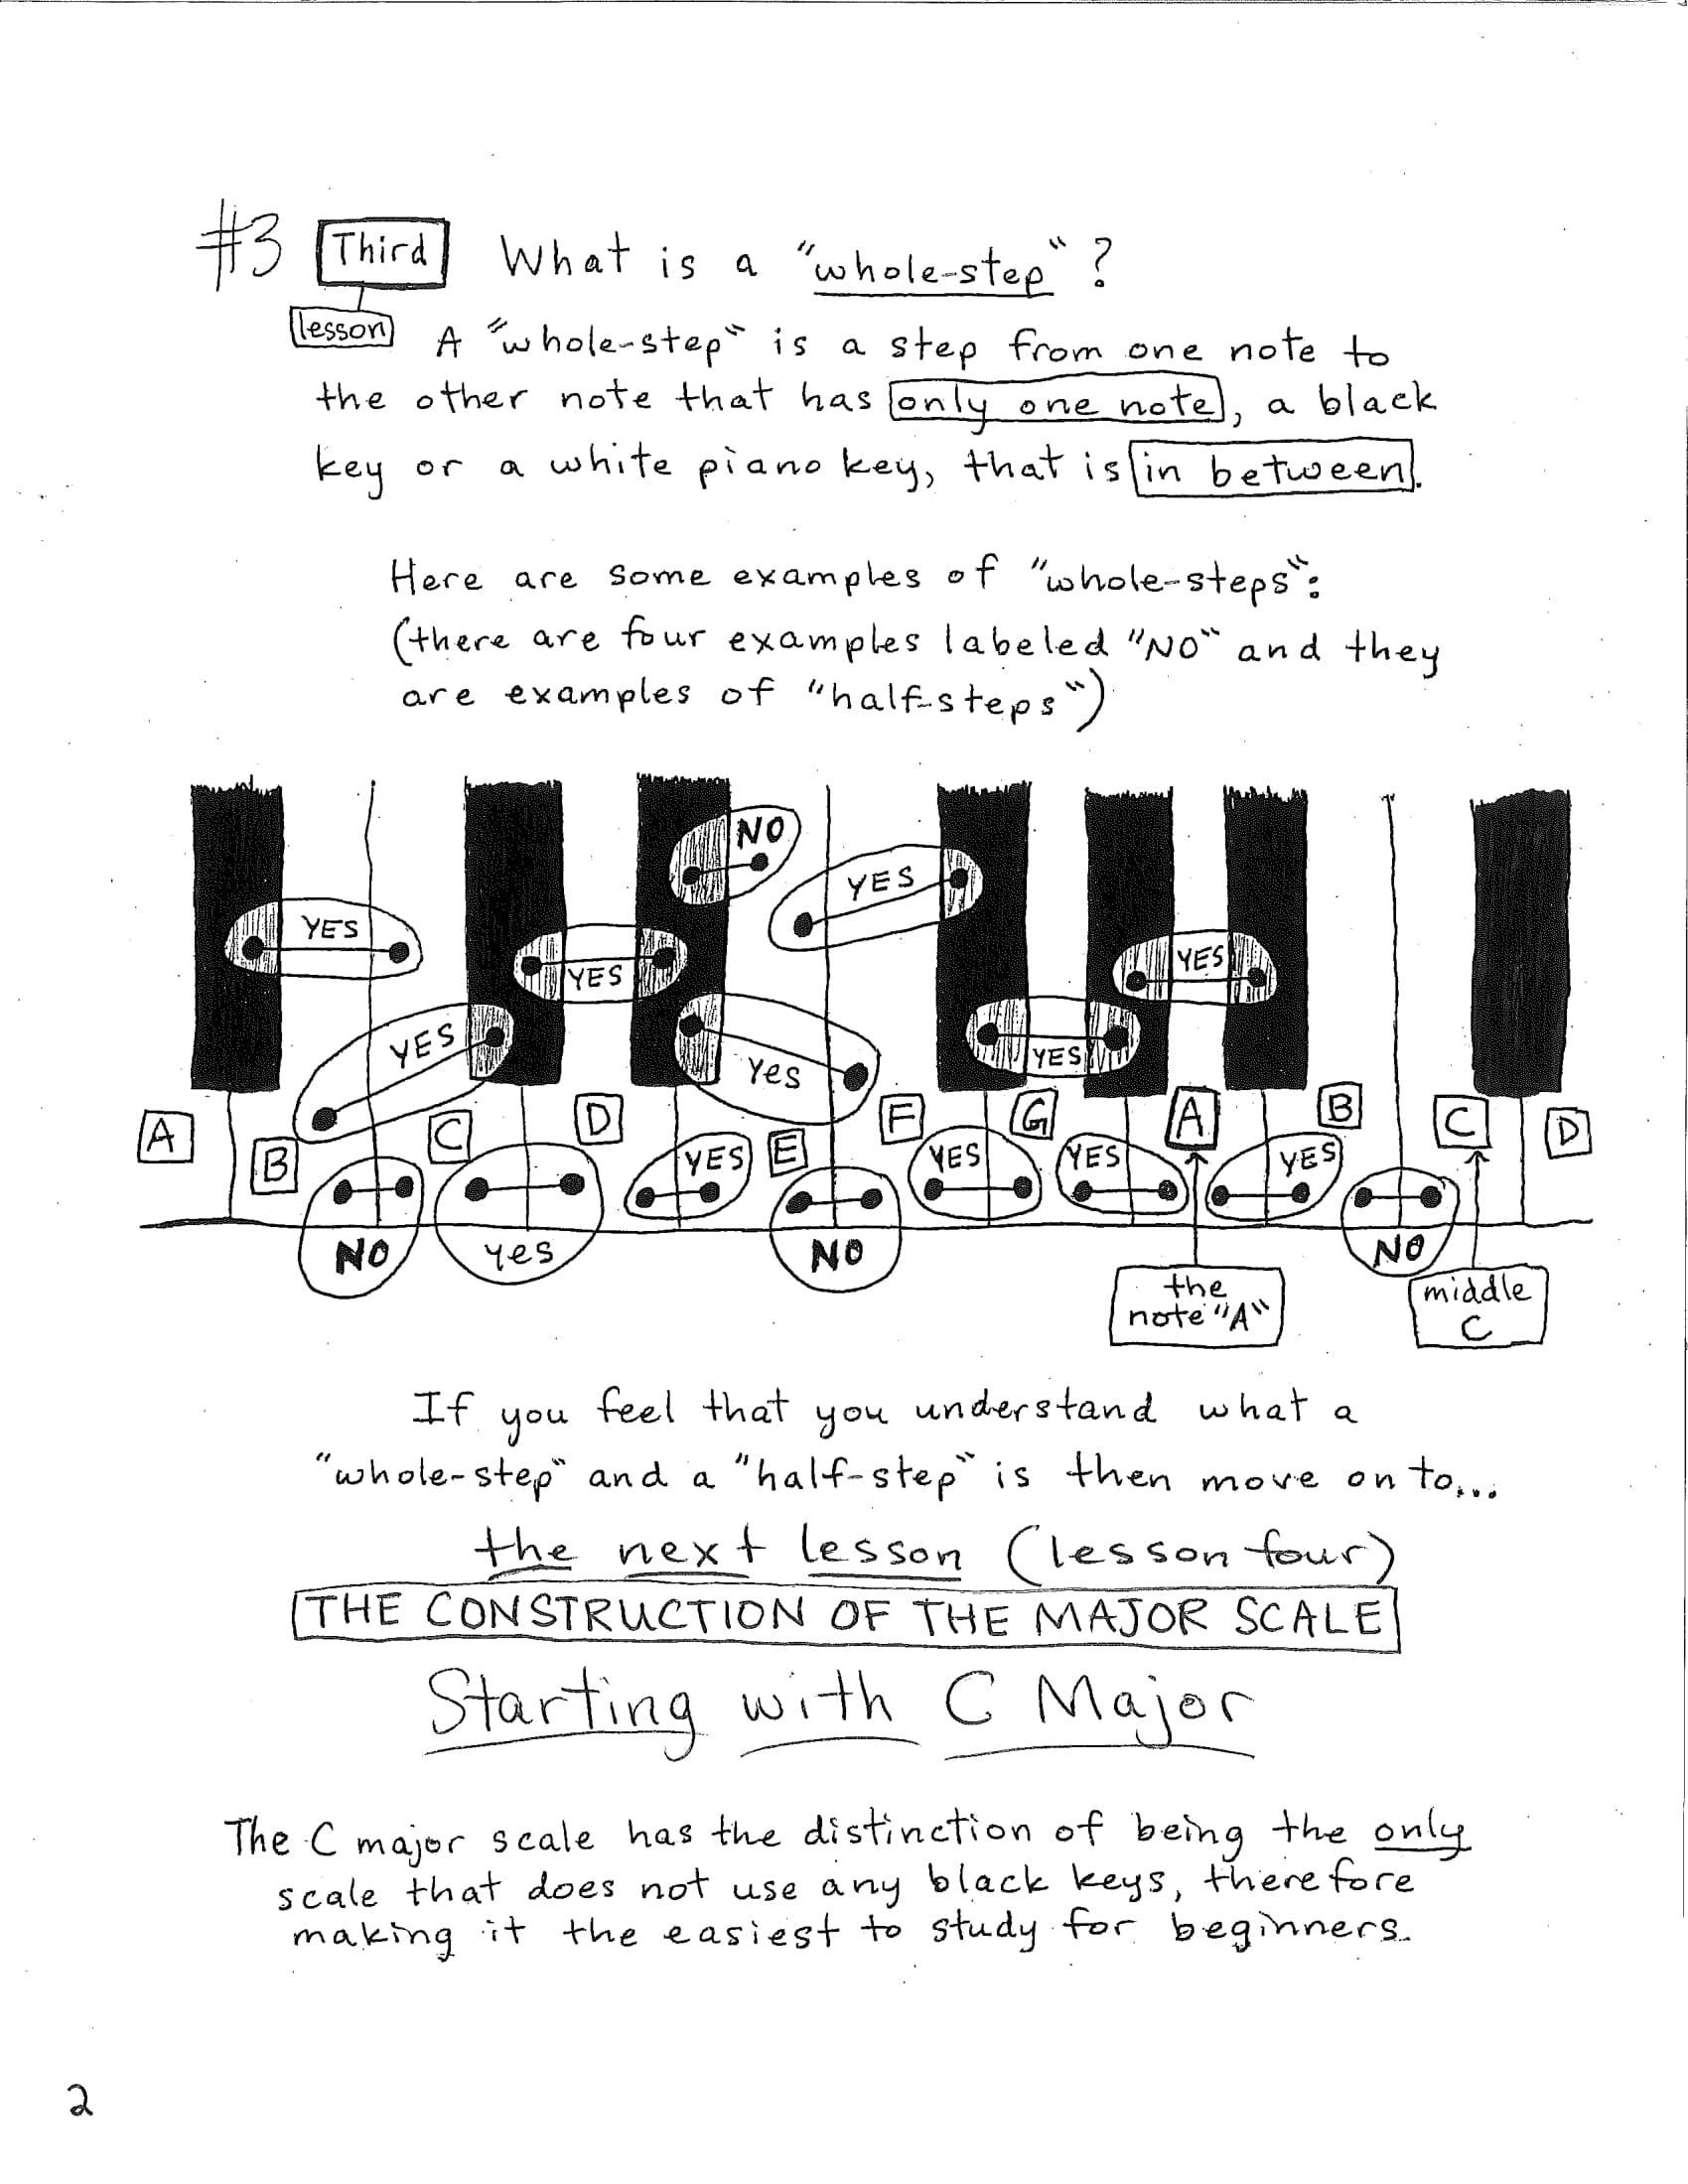 #3 Third What is a "whole-step"?
lesson A "whole-step" is a step from one note to
the other note that has only one note, a black
key or a white piano key, that is in between.
Here are some examples of "whole-steps":
(there are four examples labeled "NO" and they
are examples of "half-steps")
NO
YES
YES
YES
YES
YES
YES
YES
Yes
A
B
C
D
E
F
G
A
B
C
D
YES
YES
YES
YES
NO
yes
NO
NO
the
note "A"
middle
C
If you feel that you understand what a
"whole-step" and a "half-step" is then move on to...
the next lesson (lesson four)
THE CONSTRUCTION OF THE MAJOR SCALE
Starting with C Major
The C major scale has the distinction of being the only
scale that does not use any black keys, therefore
making it the easiest to study for beginners.
2